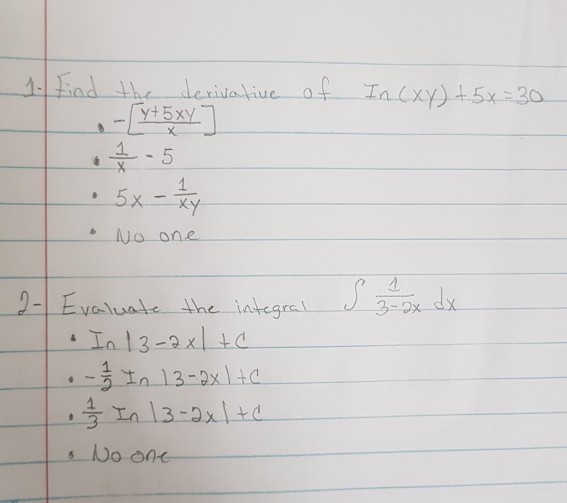 1- Find the derivative of In(xy)+5x=30
• -[y+5xy/x]
• 1/x - 5
• 5x - 1/xy
• No one
2- Evaluate the integral ∫ 1/3-2x dx
• In |3-2x| +C
• -1/2 In |3-2x|+C
• 1/3 In |3-2x|+C
• No one